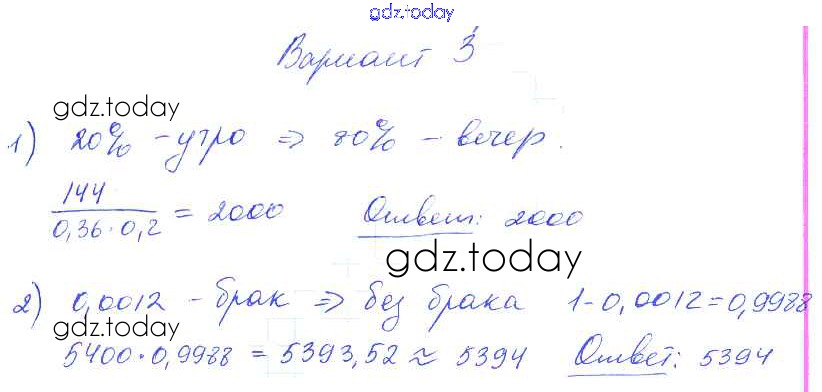 gdz.today
Вариант 3
gdz.today
1) 20% - утро => 80% - вечер.
144 / 0,36·0,2 = 2000 Ответ: 2000
gdz.today
2) 0,0012 - брак => без брака 1-0,0012=0,9988
gdz.today
5400·0,9988 = 5393,52 ≈ 5394 Ответ: 5394